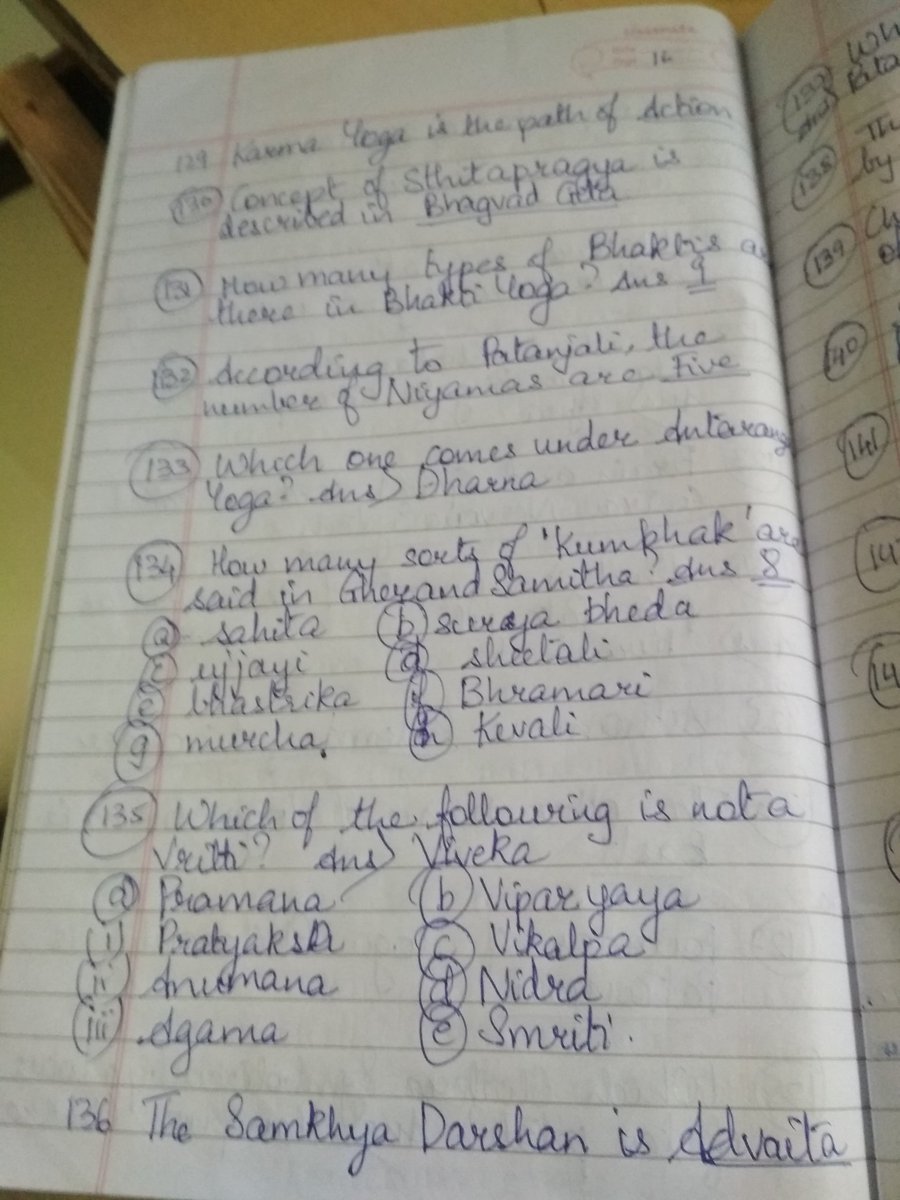 16
129 Karma Yoga is the path of Action
130 Concept of Sthitapragya is
described in Bhagvad Geta
131 How many types of Bhaktis a
there in Bhakti Yoga? Ans 9
132 According to Patanjali, the
number of Niyamas are Five
133 Which one comes under Antarang
Yoga? Ans) Dharna
134 How many sorts of 'Kumbhak' are
said in Gherand Samitha? Ans 8
a sahita b surya bheda
c ujjayi d sheetali
e bhastrika f Bhramari
g murcha. h Kevali
135 Which of the following is not a
Vritti? Ans) Viveka
a Pramana b Viparyaya
i Pratyaksh c Vikalpa
ii Anumana d Nidra
iii Agama e Smriti.
136 The Samkhya Darshan is Advaita
137 Wh
138 Th
by
139 Ch
140
141